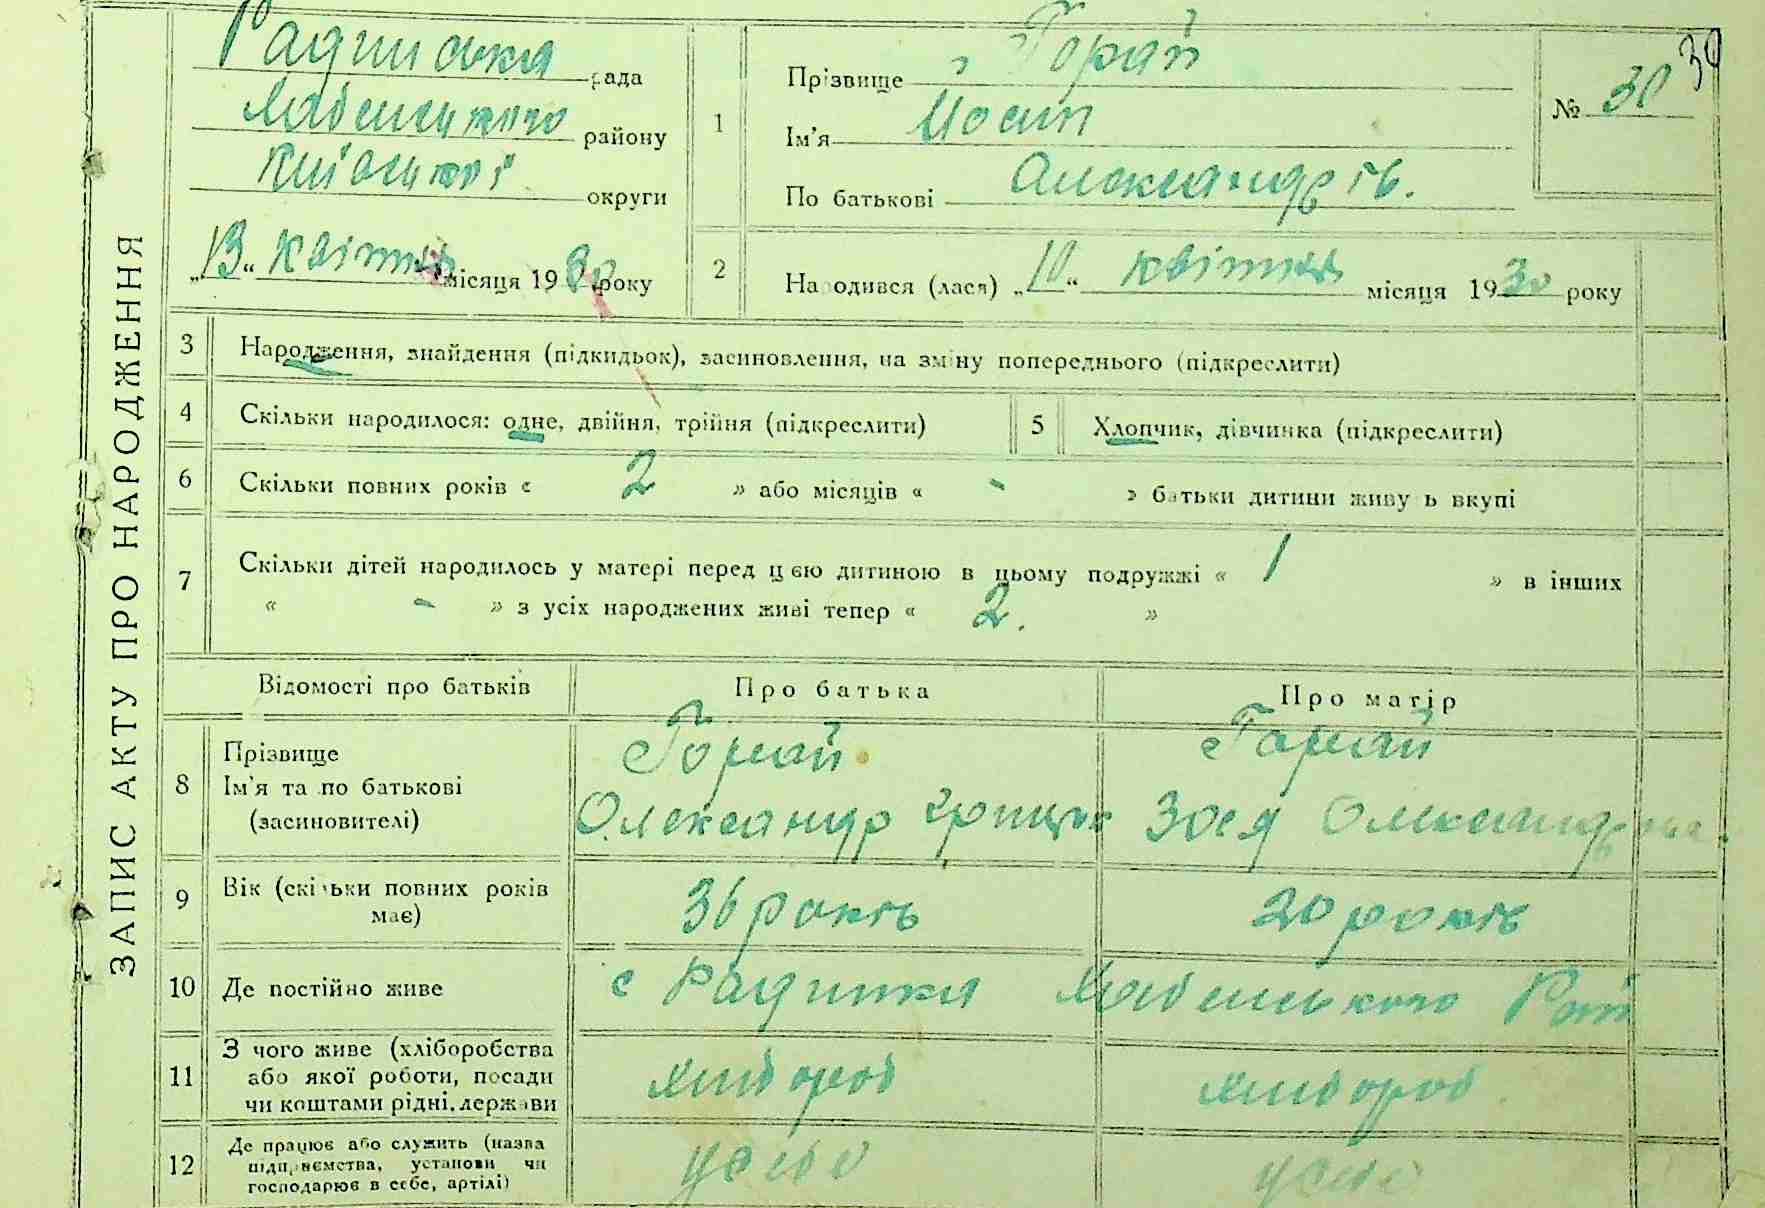 ЗАПИС АКТУ ПРО НАРОДЖЕННЯ
Радинська рада
Хабенського району
Київської округи
„13“ квітня місяця 1930 року
1
Прізвище Горай
Ім'я Йосип
По батькові Олександрів.
№ 30
30
2 Народився (лася) „10“ квітня місяця 1930 року
3 Народження, знайдення (підкидьок), засиновлення, на зміну попереднього (підкреслити)
4 Скільки народилося: одне, двійня, трійня (підкреслити)
5 Хлопчик, дівчинка (підкреслити)
6 Скільки повних років « 2 » або місяців « - » батьки дитини живуть вкупі
7 Скільки дітей народилось у матері перед цією дитиною в цьому подружжі « 1 » в інших
« - » з усіх народжених живі тепер « 2. »
Відомості про батьків
Про батька
Про матір
8 Прізвище
Ім'я та по батькові
(засиновителі)
Горай
Олександр
Горай
Зося Олександр
9 Вік (скільки повних років
має)
36 років
20 років
10 Де постійно живе
с Радинка Хабенського Рай
11 З чого живе (хліборобства
або якої роботи, посади
чи коштами рідні, держави
хлібороб
хлібороб
12 Де працює або служить (назва
підприємства, установи чи
господарює в себе, артілі)
у себе
у себе